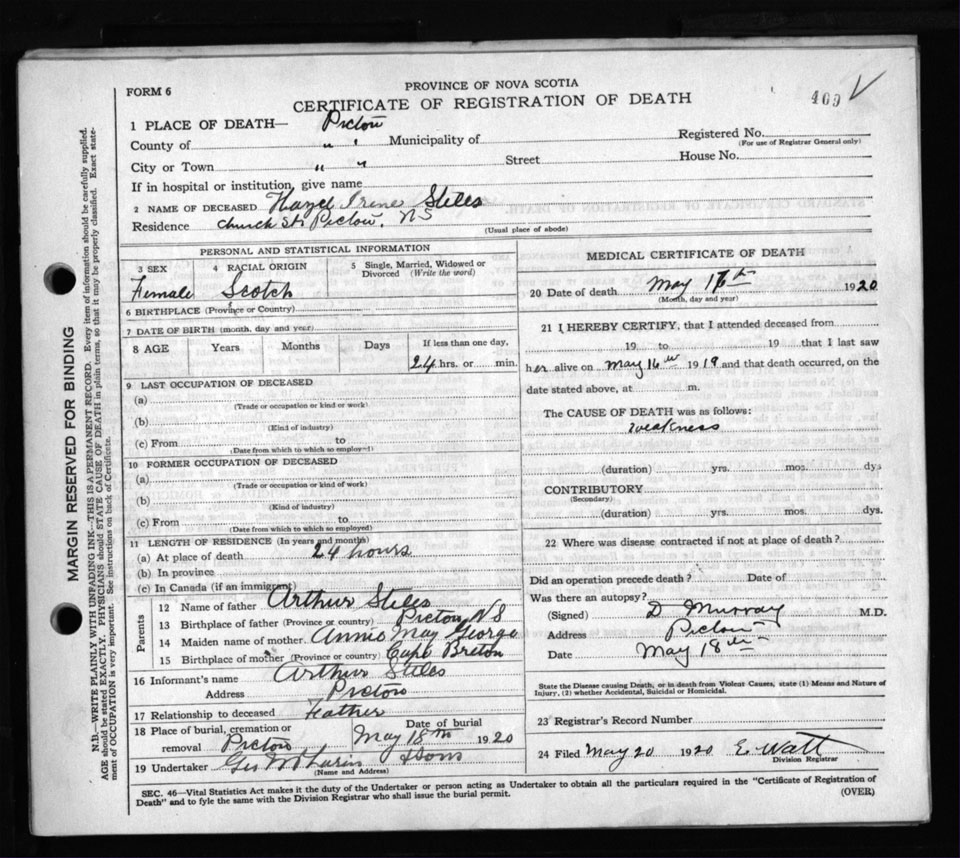 PROVINCE OF NOVA SCOTIA
FORM 6
CERTIFICATE OF REGISTRATION OF DEATH
409
1 PLACE OF DEATH— Pictou
County of " " Municipality of
Registered No.
(For use of Registrar General only)
City or Town " " Street House No.
If in hospital or institution, give name
2 NAME OF DECEASED Hazel Irene Stiles
Residence Church St. Pictou, NS
(Usual place of abode)
PERSONAL AND STATISTICAL INFORMATION
3 SEX 4 RACIAL ORIGIN 5 Single, Married, Widowed or Divorced (Write the word)
Female Scotch
6 BIRTHPLACE (Province or Country)
7 DATE OF BIRTH (month, day and year)
8 AGE Years Months Days If less than one day,
24 hrs. or min.
9 LAST OCCUPATION OF DECEASED
(a)
(Trade or occupation or kind or work)
(b)
(Kind of industry)
(c) From to
(Date from which to which so employ—)
10 FORMER OCCUPATION OF DECEASED
(a)
(Trade or occupation or kind of work)
(b)
(Kind of industry)
(c) From to
(Date from which to which so employed)
11 LENGTH OF RESIDENCE (In years and months)
(a) At place of death 24 hours
(b) In province
(c) In Canada (if an immigrant)
Parents
12 Name of father Arthur Stiles
13 Birthplace of father (Province or country) Pictou NS
14 Maiden name of mother. Annie May George
15 Birthplace of mother (Province or country) Cape Breton
16 Informant's name Arthur Stiles
Address Pictou
17 Relationship to deceased Father
18 Place of burial, cremation or removal Pictou
Date of burial May 18th 1920
19 Undertaker Geo & Sons
(Name and Address)
MEDICAL CERTIFICATE OF DEATH
20 Date of death May 1920
(Month, day and year)
21 I HEREBY CERTIFY, that I attended deceased from
19 to 19 that I last saw
her alive on May 16th 1919 and that death occurred, on the
date stated above, at m.
The CAUSE OF DEATH was as follows:
weakness
(duration) yrs. mos. dys
CONTRIBUTORY
(Secondary)
(duration) yrs. mos. dys.
22 Where was disease contracted if not at place of death?
Did an operation precede death? Date of
Was there an autopsy?
(Signed) D Murray M.D.
Address Pictou
Date May 18th
State the Disease causing Death, or in death from Violent Causes, state (1) Means and Nature of
Injury, (2) whether Accidental, Suicidal or Homicidal.
23 Registrar's Record Number
24 Filed May 20 1920 E. Watt
Division Registrar
SEC. 46—Vital Statistics Act makes it the duty of the Undertaker or person acting as Undertaker to obtain all the particulars required in the "Certificate of Registration of
Death" and to fyle the same with the Division Registrar who shall issue the burial permit.
(OVER)
MARGIN RESERVED FOR BINDING
N.B.—WRITE PLAINLY WITH UNFADING INK—THIS IS A PERMANENT RECORD. Every item of information should be carefully supplied.
AGE should be stated EXACTLY. PHYSICIANS should STATE CAUSE OF DEATH in plain terms, so that it may be properly classified. Exact state-
ment of OCCUPATION is very important. See instructions on back of Certificate.